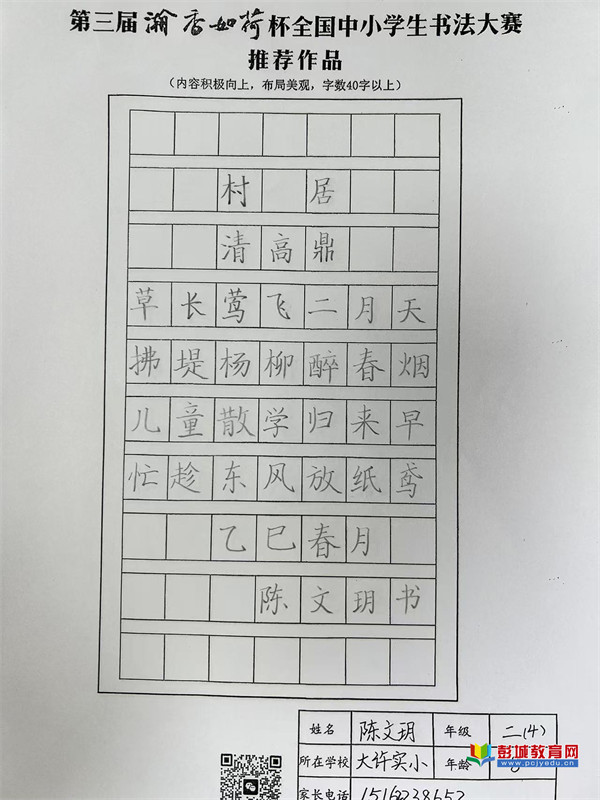 第三届瀚香如荷杯全国中小学生书法大赛
推荐作品
（内容积极向上，布局美观，字数40字以上）
村居
清高鼎
草长莺飞二月天
拂堤杨柳醉春烟
儿童散学归来早
忙趁东风放纸鸢
乙巳春月
陈文玥书
姓名 陈文玥 年级 二(4)
所在学校 大许实小 年龄
家长电话
彭城教育网
www.pcjyedu.cn